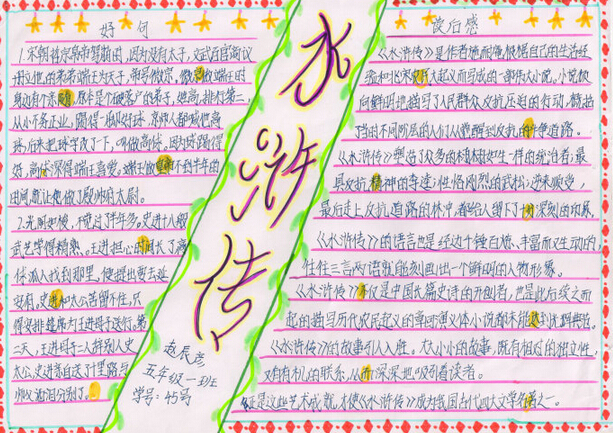 好句
1.宋朝哲宗皇帝驾崩因,因为没有太子,文武百官商议
身边有个亲随,原本是个破落户的弟子,姓高,排行第二,
从小不务正业,踢得一脚好球,京师人都叫他高
球,后来把球字改了下,叫做高俅。因为球踢得
好,高俅深得端王喜爱,端王做皇帝不到半年的
时间,就让他做了殿帅府太尉。
2.光阴如梭,眨过了半年多。史进十八般
武艺学得精熟,王进担心时间长了高
俅派人找到那里,便提出要去延
安府,史进和太公苦留不住,只
得安排筵席为王进母子送行。第
二天,王进母子二人辞别太史
太公,史进亲自送了十里路与
师父洒泪分别了…
水浒传
赵辰彦
五年级一班
学号:45号
读后感
《水浒传》是作者施耐庵根据自己的生活经
验和北宋农民大起义而写成的一部伟大小说。小说极
向鲜明地描写了人民群众反抗压迫的行动,概括
了的不同阶层的人们从觉醒到反抗的斗争道路。
《水浒传》塑造了众多的栩栩如生一样的统治者;最
具反抗精神的李逵;性格刚烈的武松;逆来顺受,
最后走上反抗道路的林冲,都给人留下了十分深刻的印象。
《水浒传》的语言也是经过千锤百炼、丰富而又生动的,
往往三言两语就能刻画出一个鲜明的人物形象。
《水浒传》不仅是中国长篇史诗的开创者,也是此后续之而
起的描写历代农民起义的英雄演义体小说都未能达到水浒典范。
《水浒传》的故事引人入胜。大大小小的故事,既有相对的独立性,
又有有机的联系,从而深深地吸引着读者。
正是这些艺术成就,才使《水浒传》成为我国古代四大文学名著之一。